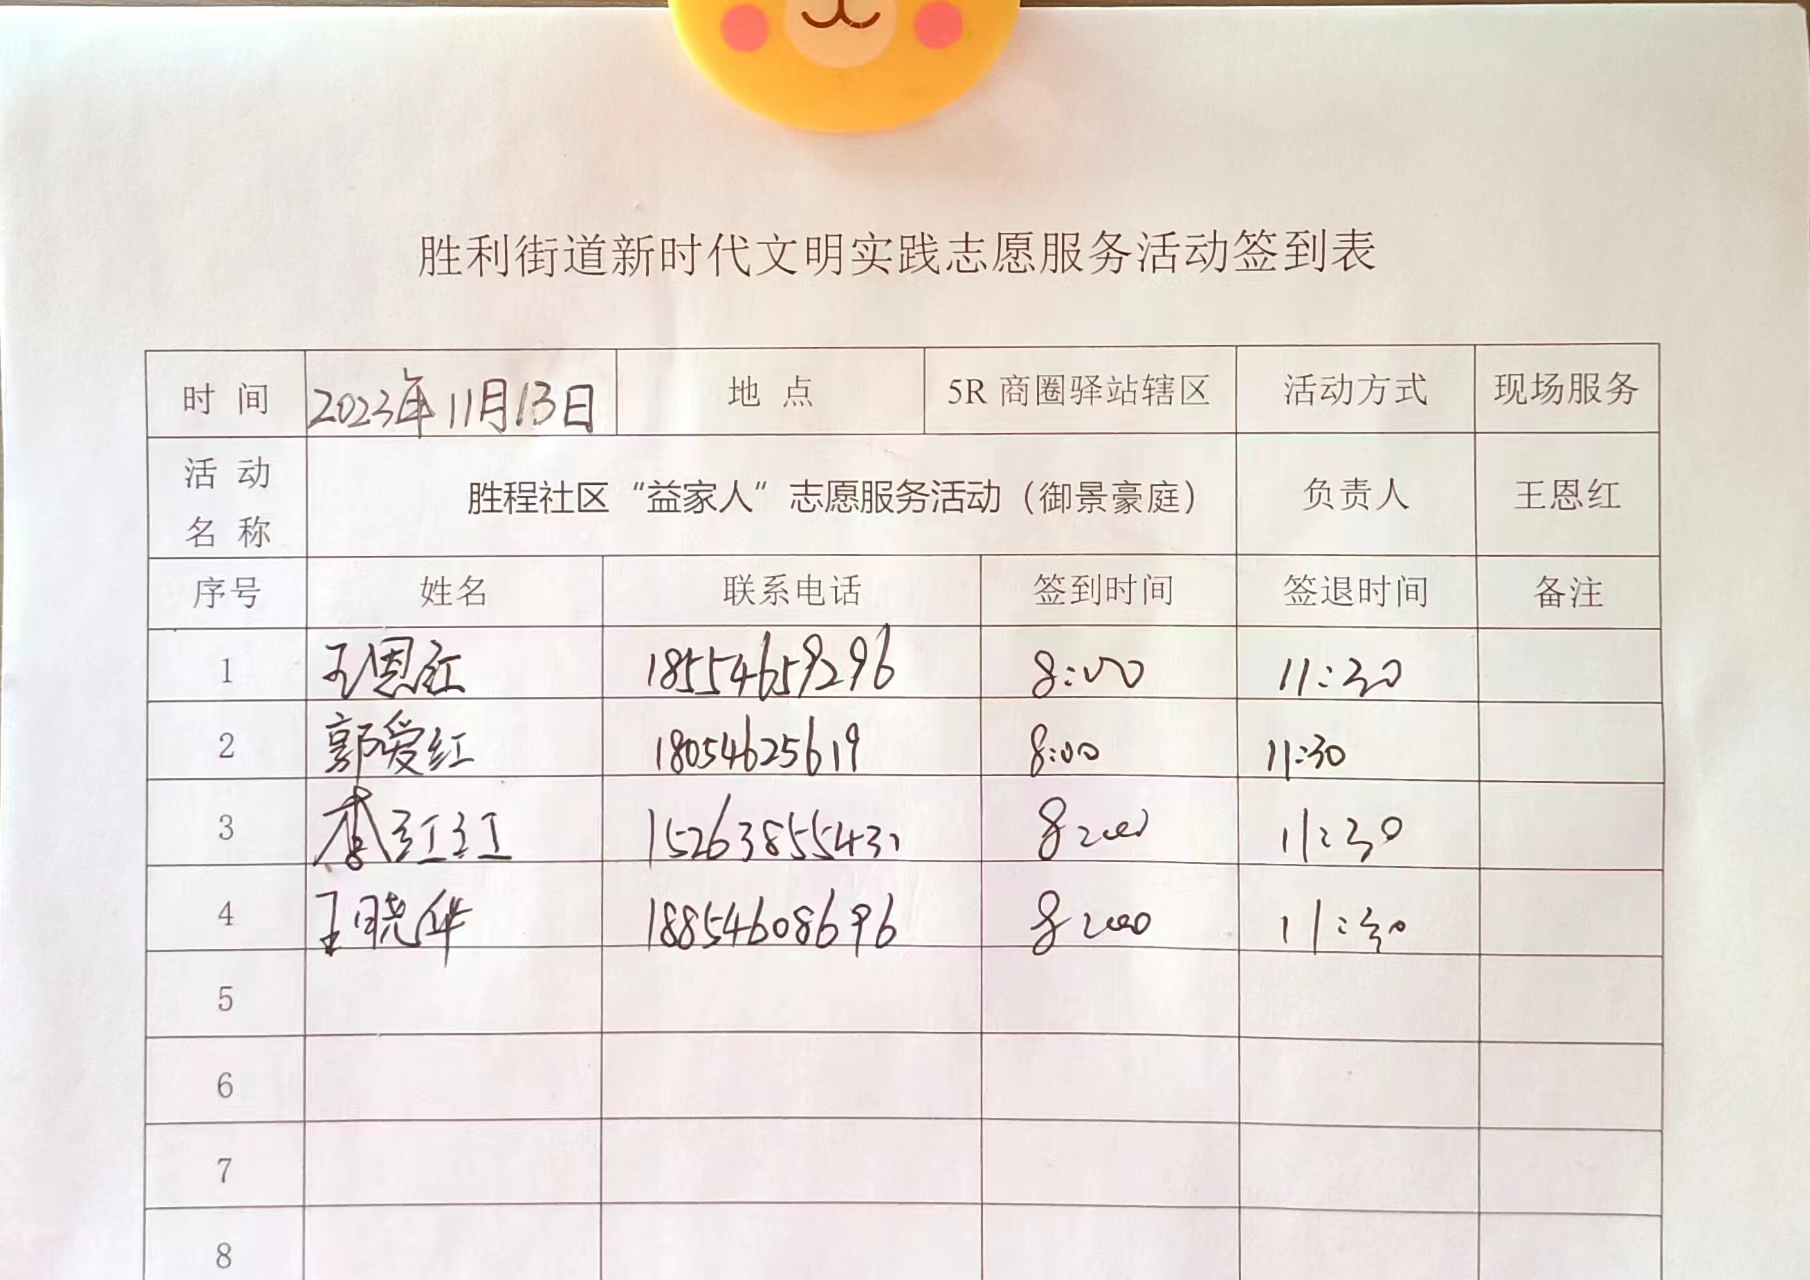 胜利街道新时代文明实践志愿服务活动签到表
时 间 2023年11月13日 地 点 5R 商圈驿站辖区 活动方式 现场服务
活 动 名 称 胜程社区“益家人”志愿服务活动（御景豪庭） 负责人 王恩红
序号 姓名 联系电话 签到时间 签退时间 备注
1 王恩红 18554659296 8:00 11:30
2 郭爱红 18054625619 8:00 11:30
3 李红红 15263855431 8:00 11:30
4 王晓华 18854608696 8:00 11:30
5
6
7
8